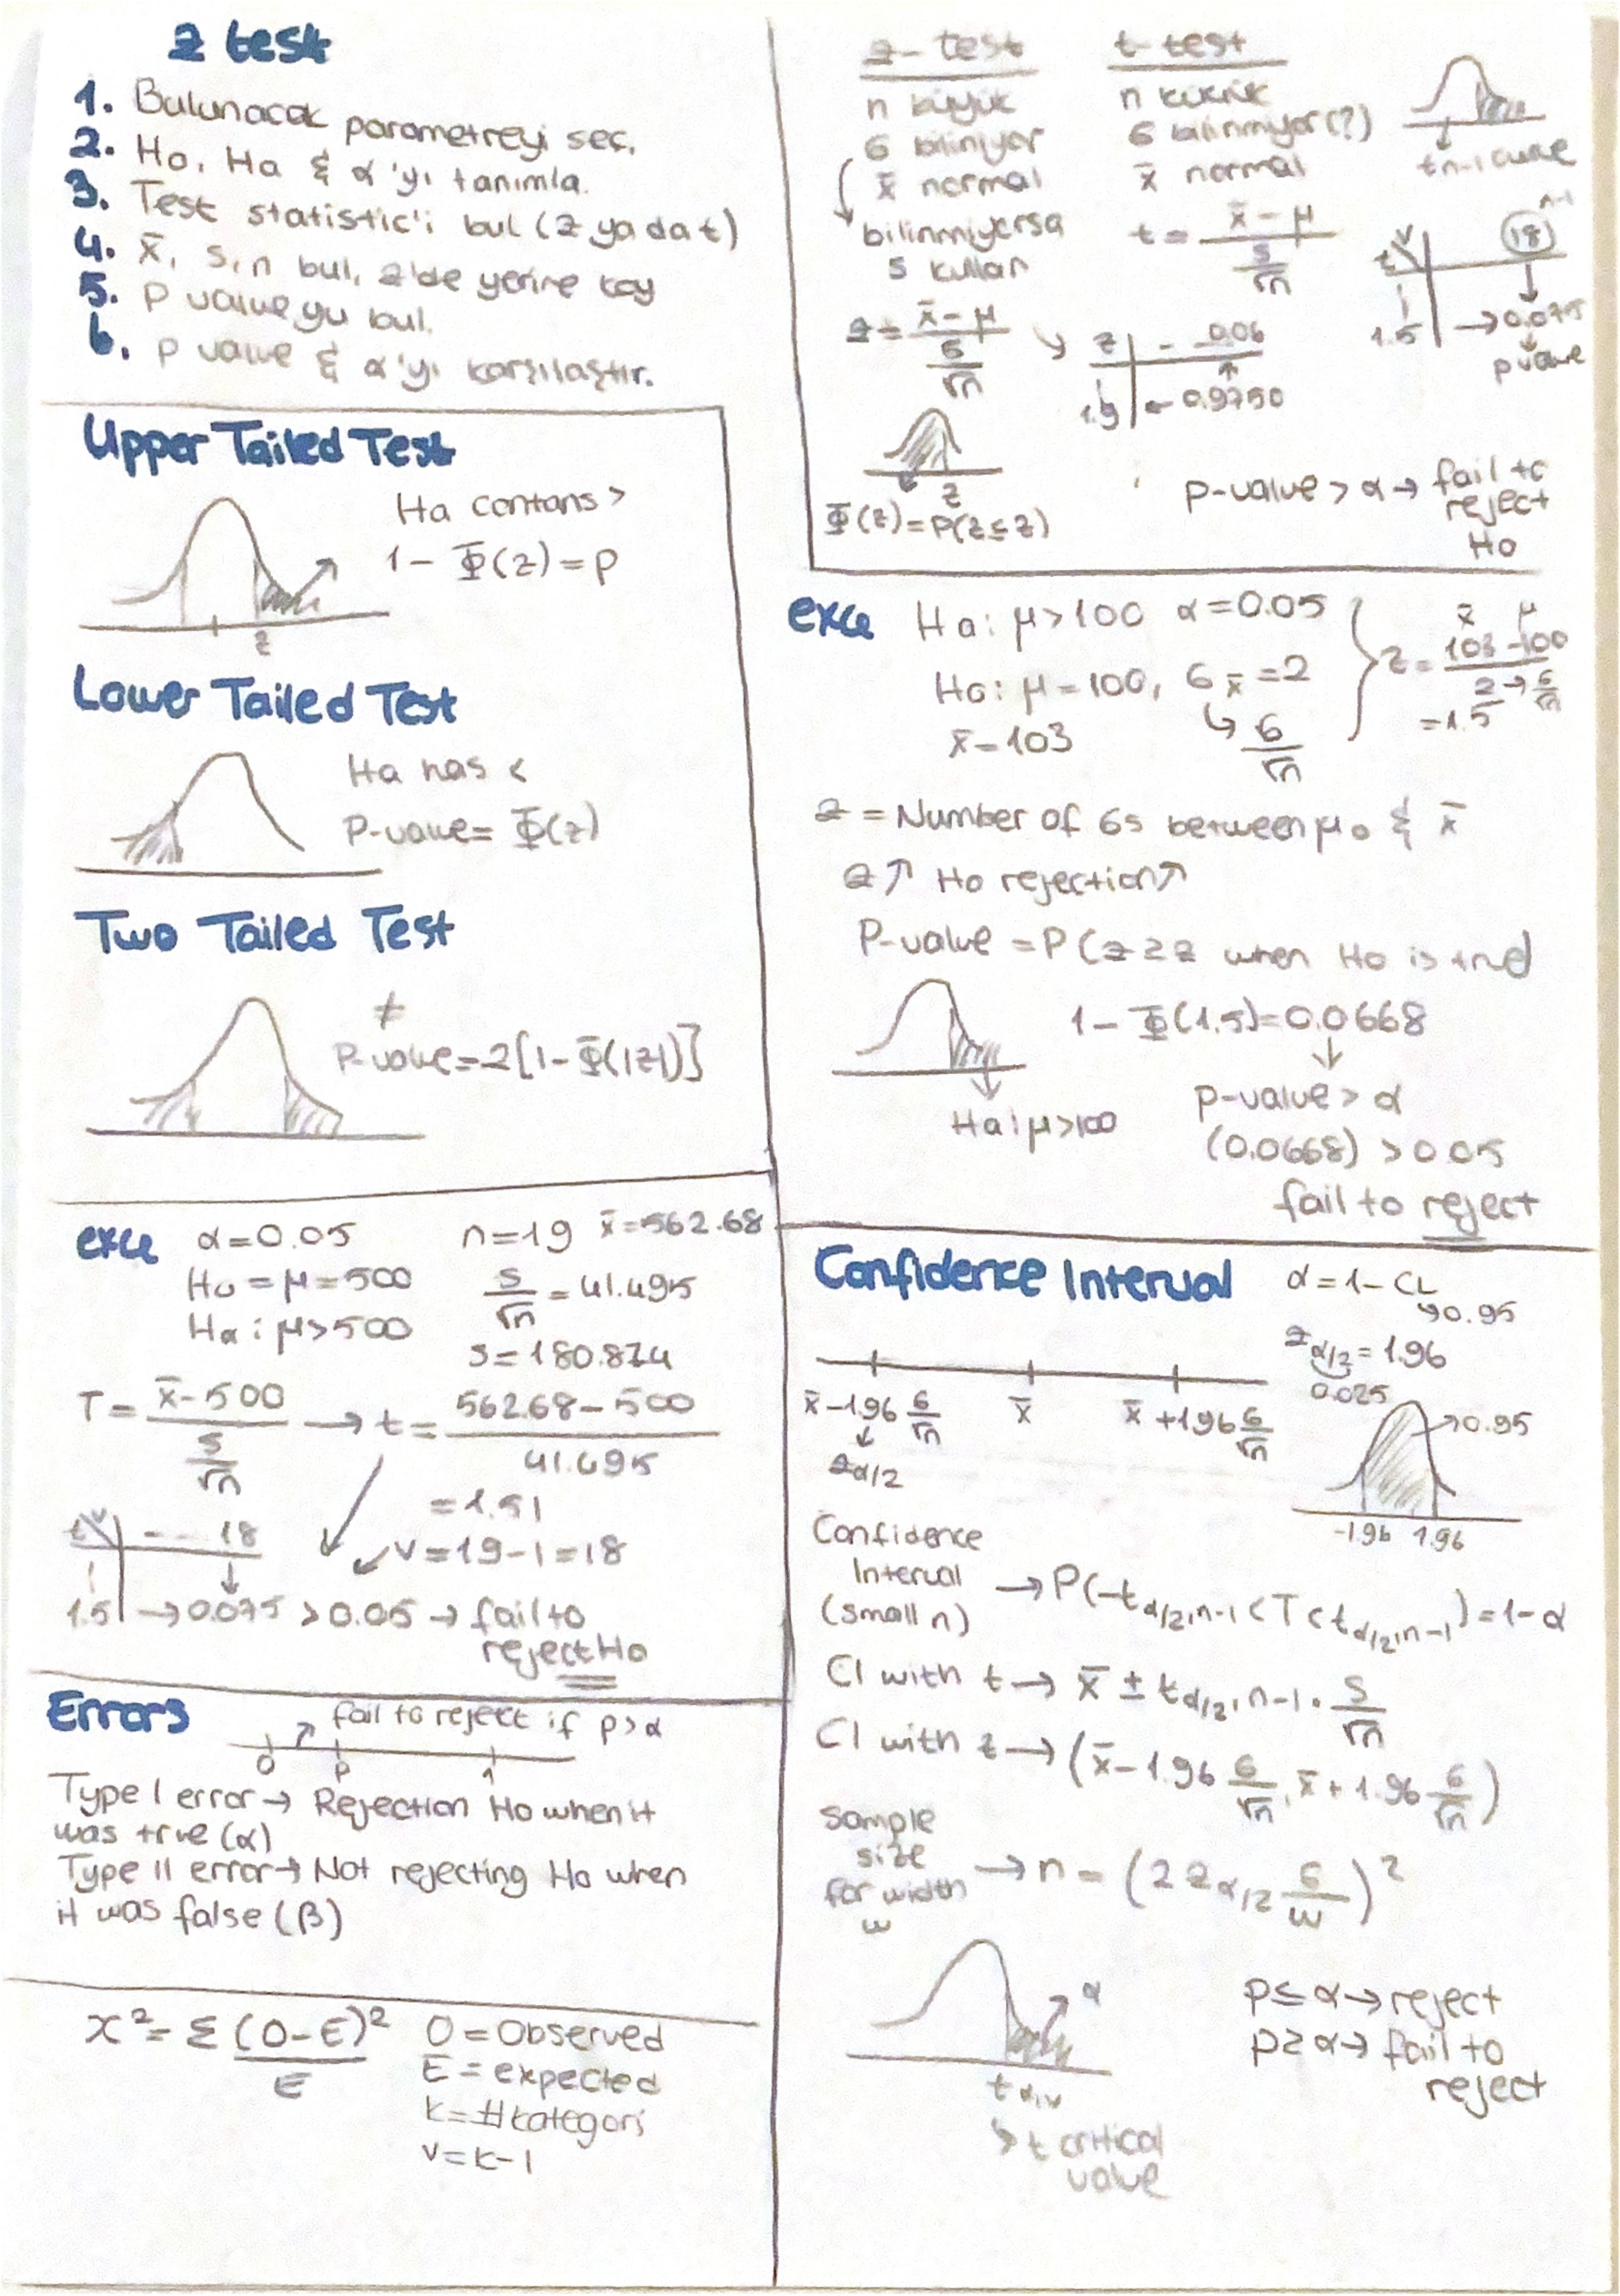 z test
1. Bulunacak parametreyi seç.
2. Ho, Ha & α'yı tanımla.
3. Test statistic'i bul (z ya da t)
4. x̄, s, n bul, z'de yerine koy
5. P value yu bul.
6. p value & α'yı karşılaştır.
Upper Tailed Test
Ha contans >
1 - Φ(z) = P
z
Lower Tailed Test
Ha has <
P-value = Φ(z)
Two Tailed Test
≠
P-value = 2[1 - Φ(|z|)]
exce α = 0.05 n = 19 x̄ = 562.68
Ho = μ = 500 s/√n = 41.495
Ha : μ > 500
s = 180.874
T = (x̄ - 500)/(s/√n) → t = (562.68 - 500)/41.495
= 1.51
v = 19 - 1 = 18
t v -- 18
1.5 → 0.075 > 0.05 → fail to
reject Ho
Errors
fail to reject if p > α
0 P 1
Type I error → Rejection Ho when it
was true (α)
Type II error → Not rejecting Ho when
it was false (β)
X² = Σ (O-E)²/E
O = Observed
E = expected
k = #kategori
v = k - 1
z - test
n büyük
σ biliniyor
x̄ normal
bilinmiyorsa
s kullan
z = (x̄ - μ)/(σ/√n)
z -- 0.06
1.9 ← 0.9750
z
Φ(z) = P(z ≤ z)
t - test
n küçük
σ bilinmiyor (?)
x̄ normal
t = (x̄ - μ)/(s/√n)
tn-1 curve
n-1
t v 18
1.5 → 0.075
p value
p-value > α → fail to
reject
Ho
exce Ha : μ > 100 α = 0.05
Ho : μ = 100, σx̄ = 2
x̄ = 103 σ/√n
x̄ μ
z = (103 - 100)/2 → σ/√n
= 1.5
z = Number of σs between μo & x̄
z ↑ Ho rejection ↑
P-value = P(z ≥ z when Ho is true)
1 - Φ(1.5) = 0.0668
Ha : μ > 100
p-value > α
(0.0668) > 0.05
fail to reject
Confidence Interval
α = 1 - CL
0.95
zα/2 = 1.96
0.025
x̄ - 1.96 σ/√n x̄ x̄ + 1.96 σ/√n
zα/2
0.95
-1.96 1.96
Confidence
Interval
(small n)
→ P(-tα/2,n-1 < T < tα/2,n-1) = 1 - α
CI with t → x̄ ± tα/2,n-1 . s/√n
CI with z → (x̄ - 1.96 σ/√n, x̄ + 1.96 σ/√n)
sample
size
for width
w
→ n = (2 zα/2 σ/w)²
α
tα,v
t critical
value
P ≤ α → reject
p ≥ α → fail to
reject